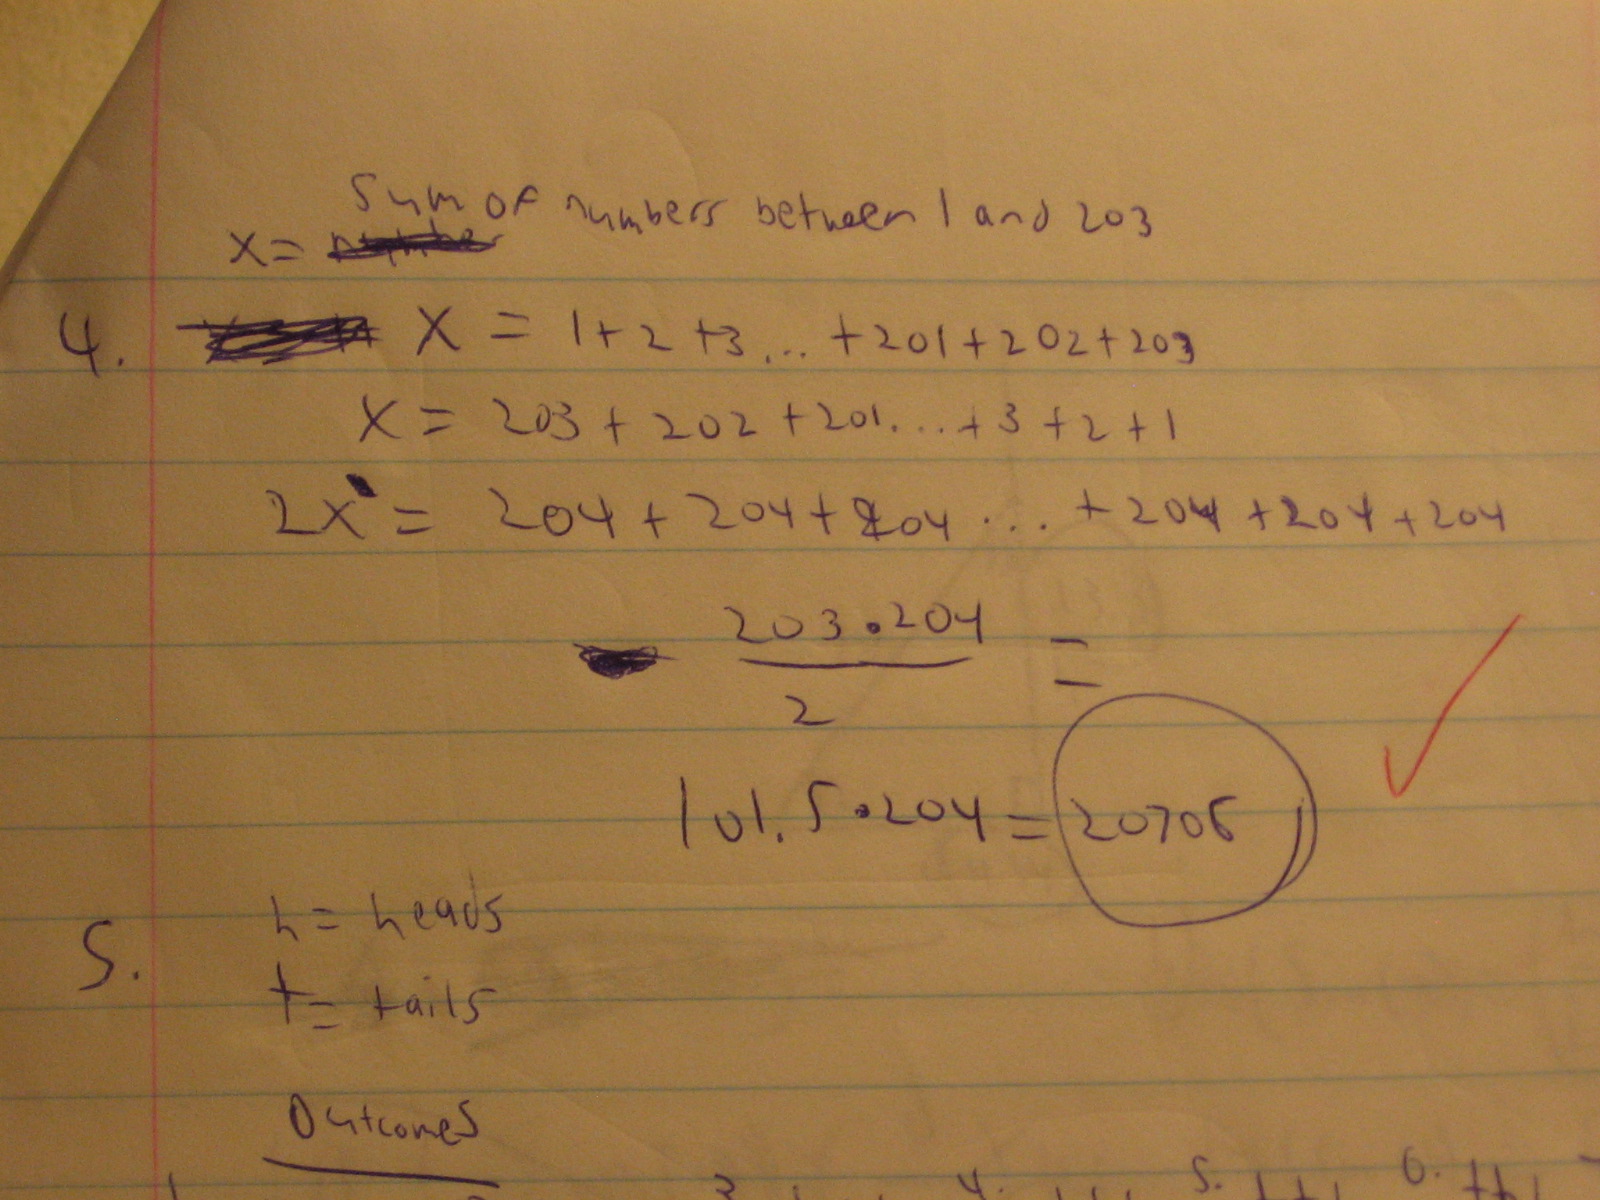 Sum of numbers between 1 and 203
x =
4. X = 1+2+3... +201+202+203
X = 203 + 202 +201....+3+2+1
2X = 204 + 204+204 ... +204 +204 +204
203.204 =
2
101.5.204 = 20706
5. h = heads
t = tails
Outcomes
3 4. 5. 6.